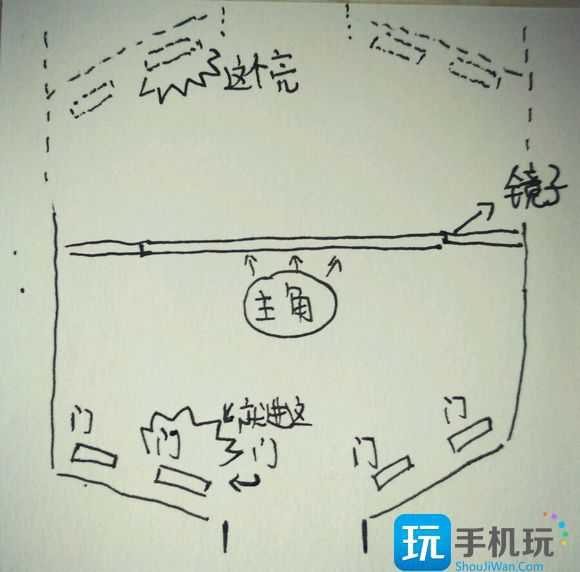 这个亮
镜子
主角
门
门
应进这
门
门
门
玩 手机玩
ShouJiWan.Com